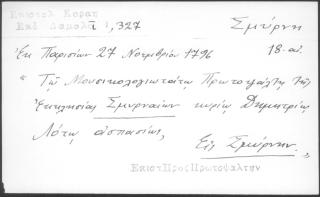 Επιστολ Κοραη
Εκδ Δαμαλᾶ 1,327
Σμύρνη
18-αι.
Ἐκ Παρισίων 27 Νοεμβρίου 1796
"Τῷ Μουσικολογιωτάτῳ Πρωτοψάλτῃ τῆς
Ἐκκλησίας Σμυρναίων κυρίῳ Δημητρίῳ
Λότῳ ἀσπασίως,
Εἰς Σμύρνην."
ΕπιστΠροςΠρωτοψαλτην